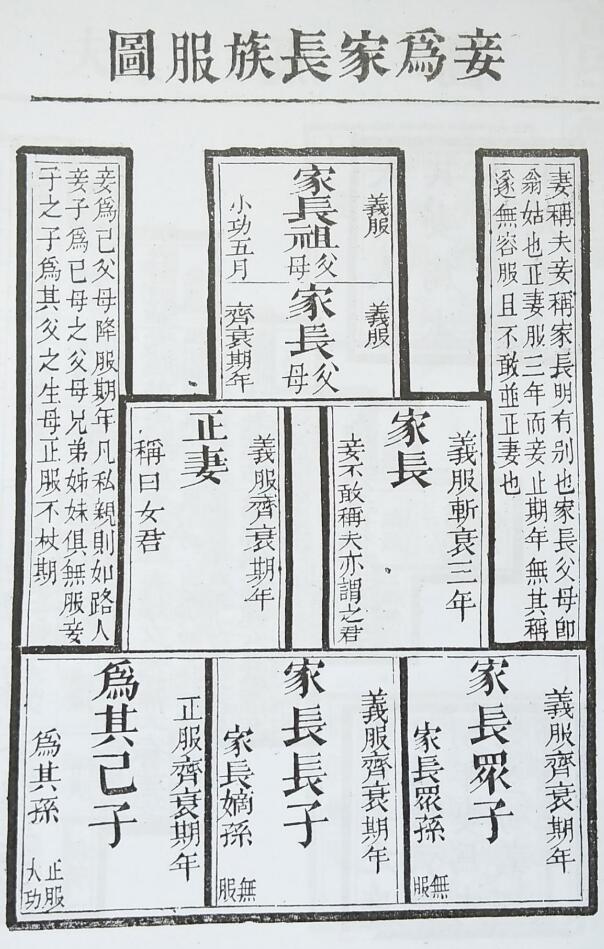 妾爲家長族服圖
妻稱夫妾稱家長明有别也家長父母卽
翁姑也正妻服三年而妾止期年無其稱
遂無容服且不敢並正妻也
義服
家長祖父母
小功五月
義服
家長父母
齊衰期年
妾爲己父母降服期年凡私親則如路人
妾子爲己母之父母兄弟姊妹俱無服妾
子之子爲其父之生母正服不杖期
義服斬衰三年
家長
妾不敢稱夫亦謂之君
義服齊衰期年
正妻
稱曰女君
義服齊衰期年
家長眾子
家長眾孫
無服
義服齊衰期年
家長長子
家長嫡孫
無服
正服齊衰期年
爲其己子
爲其孫
正服大功